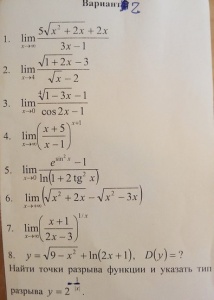 Вариант 2
1. lim x→∞ (5√(x² + 2x) + 2x)/(3x − 1)
2. lim x→4 (√(1 + 2x) − 3)/(√x − 2)
3. lim x→0 (∜(1 − 3x) − 1)/(cos 2x − 1)
4. lim x→∞ ((x + 5)/(x − 1))^(x+1)
5. lim x→0 (e^(sin² x) − 1)/(ln(1 + 2 tg² x))
6. lim x→+∞ (√(x² + 2x) − √(x² − 3x))
7. lim x→∞ ((x + 1)/(2x − 3))^(1/x)
8. y = √(9 − x²) + ln(2x + 1), D(y) = ?
Найти точки разрыва функции и указать тип
разрыва y = 2